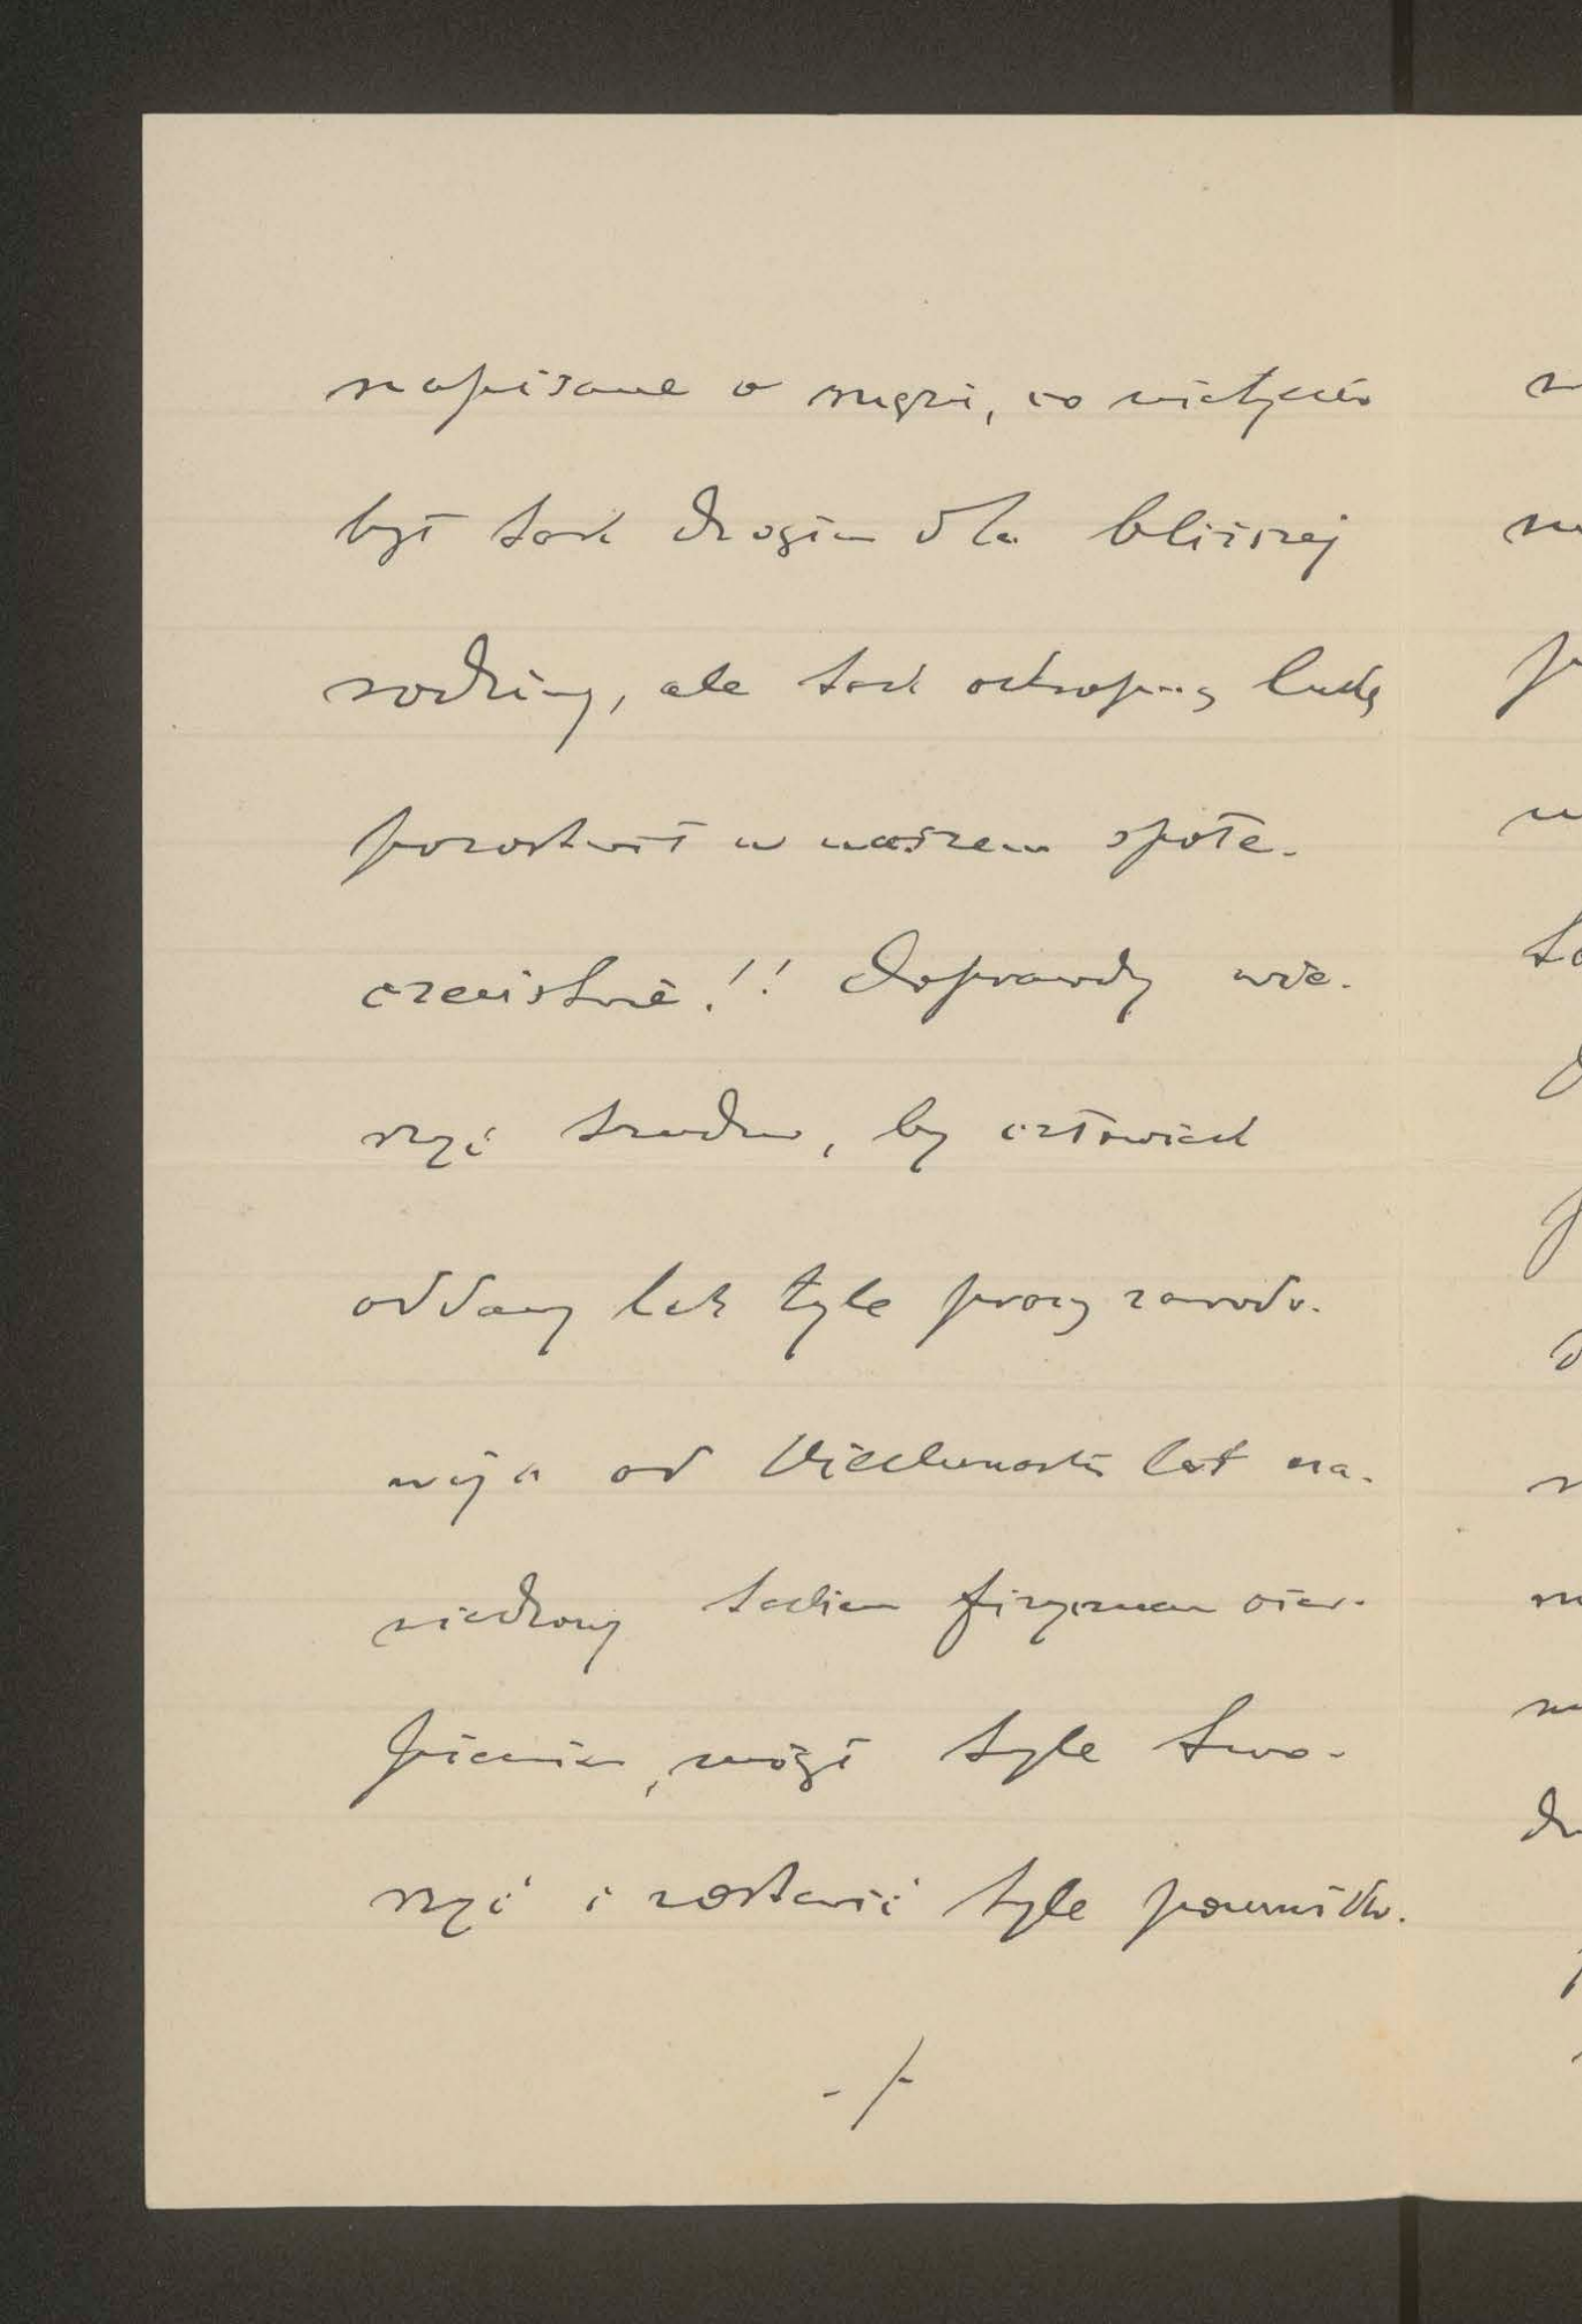 napisane o mężu, co nietylko
był tak drogim dla bliższej
rodziny, ale tak okropną lukę
pozostawił w naszem społe-
czeństwie!! Doprawdy wie-
rzyć trudno, by człowiek
oddany lat tyle pracy zawodo-
wej a od kilkunastu lat na-
wiedzony takiem fizycznem cier-
pieniem, mógł tyle two-
rzyć i zostawić tyle pomników.
-/-